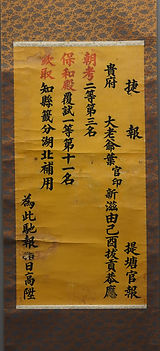 捷報
提塘官報
貴府
大老爺葉官印新滋由己酉拔貢恭應
朝考二等第三名
保和殿覆試一等第十一名
欽取知縣籤分湖北補用
為此馳報 日高陞